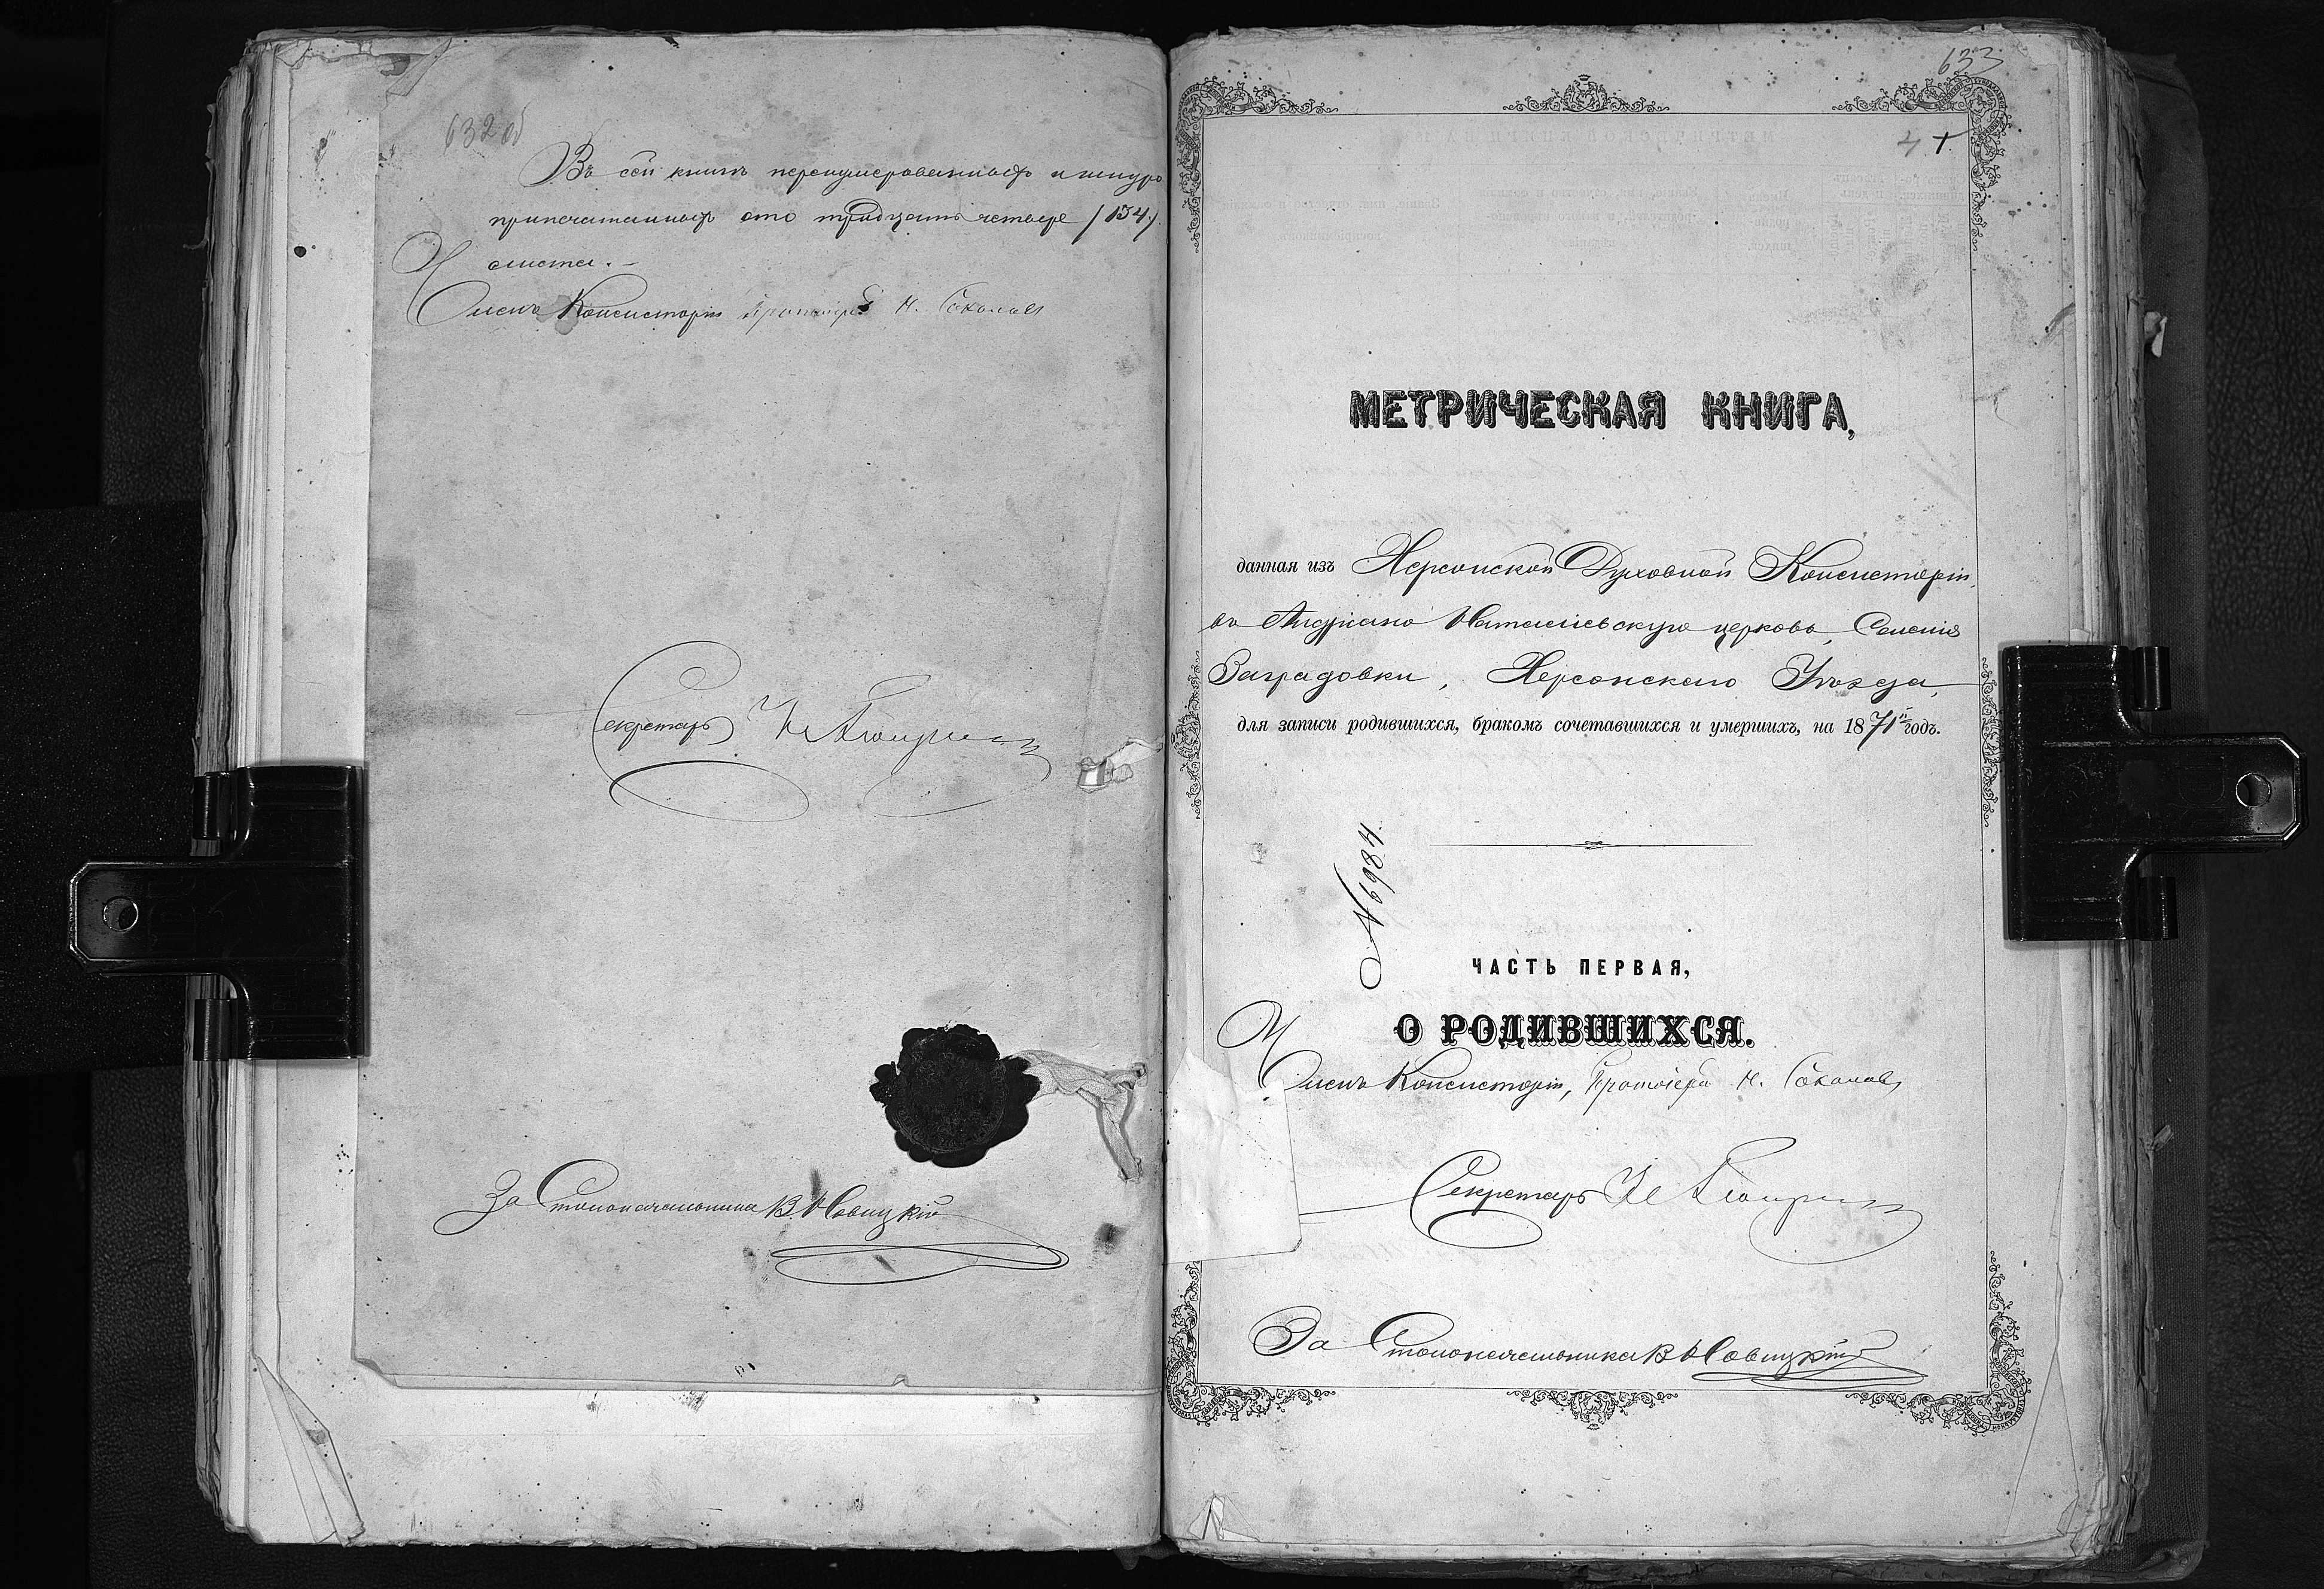 632 об
Въ сей книгѣ перенумерованныхъ и шнуро
припечатанныхъ сто тридцать четыре /134/
листа. –
Членъ Консисторіи Протоіерей Н. Соколовъ
Секретарь
За Столоначальника В. Новицкій
633
4.
МЕТРИЧЕСКАЯ КНИГА,
данная изъ Херсонской Духовной Консисторіи,
въ Андріано Наталіевскую церковь, Селенія
Заградовки, Херсонскаго Уѣзда,
для записи родившихся, бракомъ сочетавшихся и умершихъ, на 1871й годъ.
№ 6984.
ЧАСТЬ ПЕРВАЯ,
О РОДИВШИХСЯ.
Членъ Консисторіи, Протоіерей Н. Соколовъ
Секретарь
За Столоначальника В Новицкій